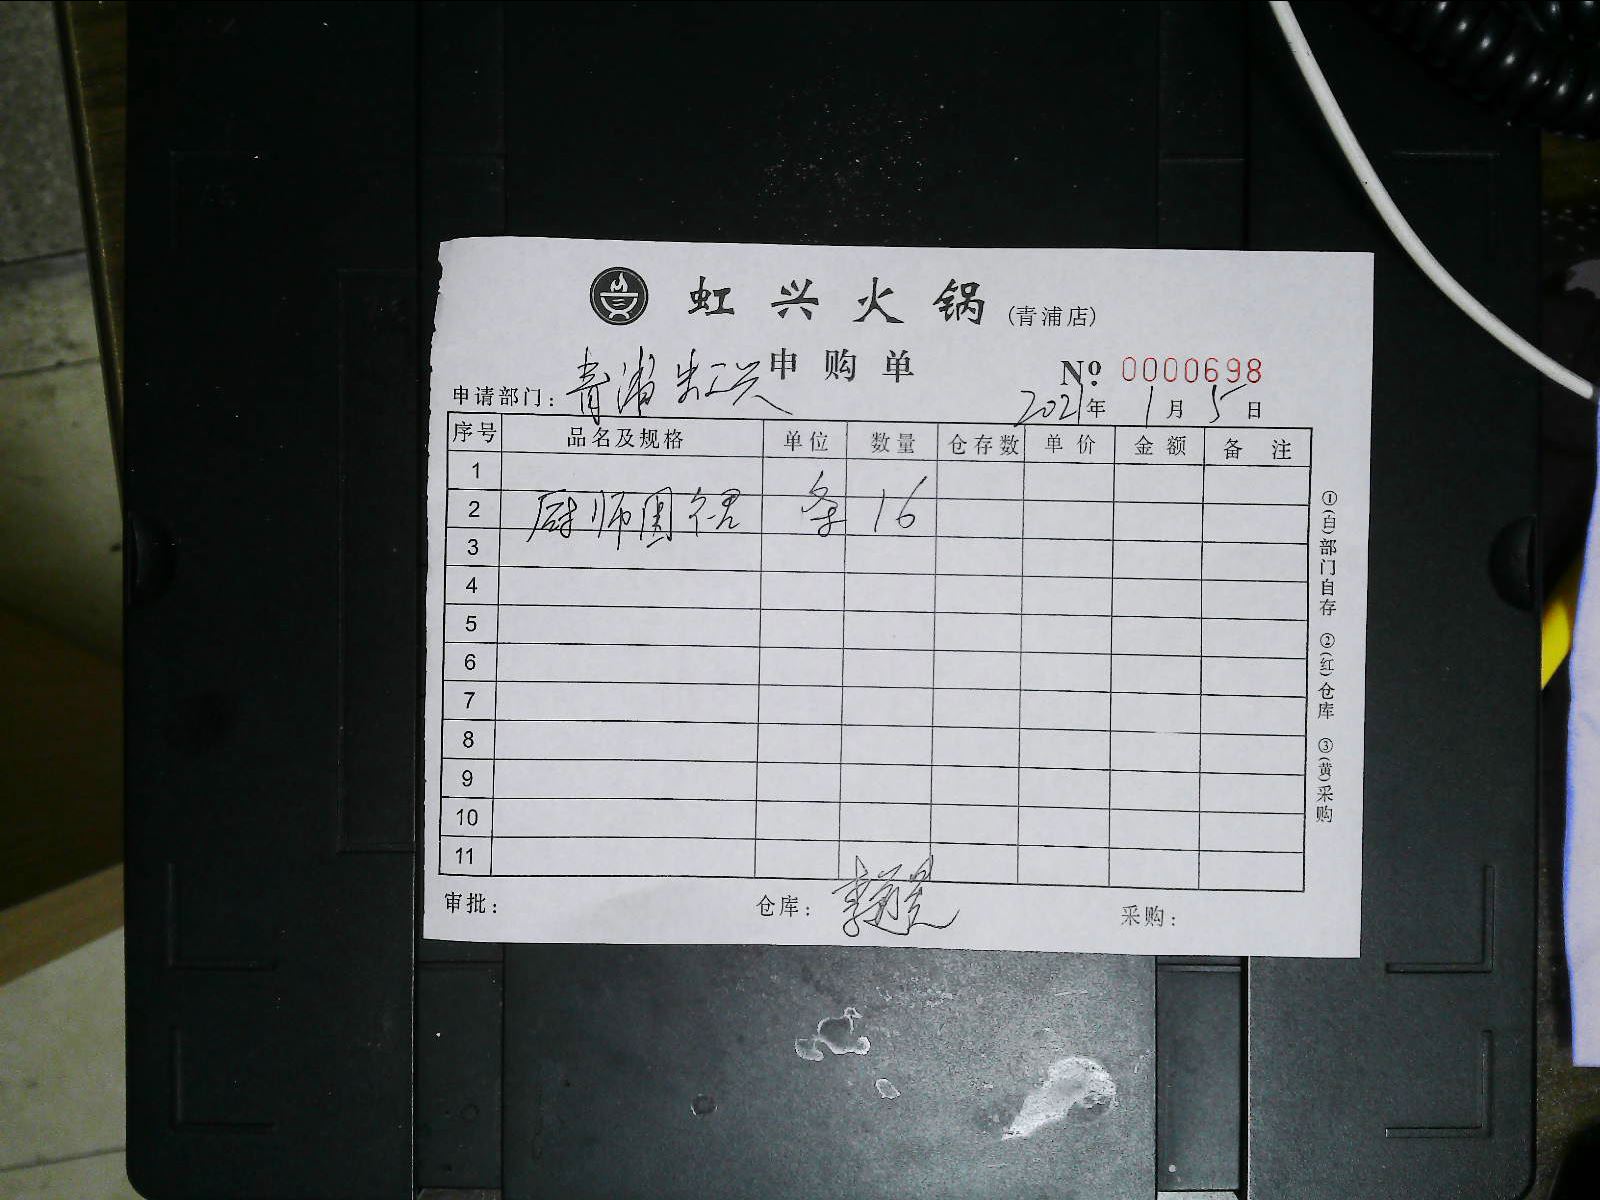 虹兴火锅(青浦店)
申购单 No 0000698
申请部门: 青浦虹兴 2021年1月5日
序号 品名及规格 单位 数量 仓存数 单价 金额 备注
1
2 厨师围裙 条 16
3
4
5
6
7
8
9
10
11
审批: 仓库: 采购:
①(白)部门自存 ②(红)仓库 ③(黄)采购